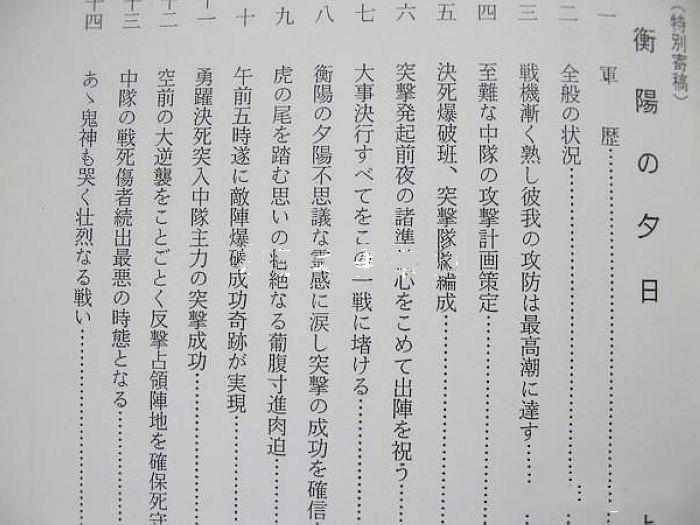 （特別寄稿）
衡陽の夕日
一 軍歴
二 全般の状況
三 戦機漸く熟し彼我の攻防は最高潮に達す
四 至難な中隊の攻撃計画策定
五 決死爆破班、突撃隊隊編成
六 突撃発起前夜の諸準 心をこめて出陣を祝う
七 大事決行すべてをこの一戦に堵ける
八 衡陽の夕陽不思議な霊感に涙し突撃の成功を確信
九 虎の尾を踏む思いの壮絶なる葡腹寸進肉迫
十 午前五時遂に敵陣爆破成功奇跡が実現
十一 勇躍決死突入中隊主力の突撃成功
十二 空前の大逆襲をことごとく反撃占領陣地を確保死守
十三 中隊の戦死傷者続出最悪の時態となる
十四 あゝ鬼神も哭く壮烈なる戦い